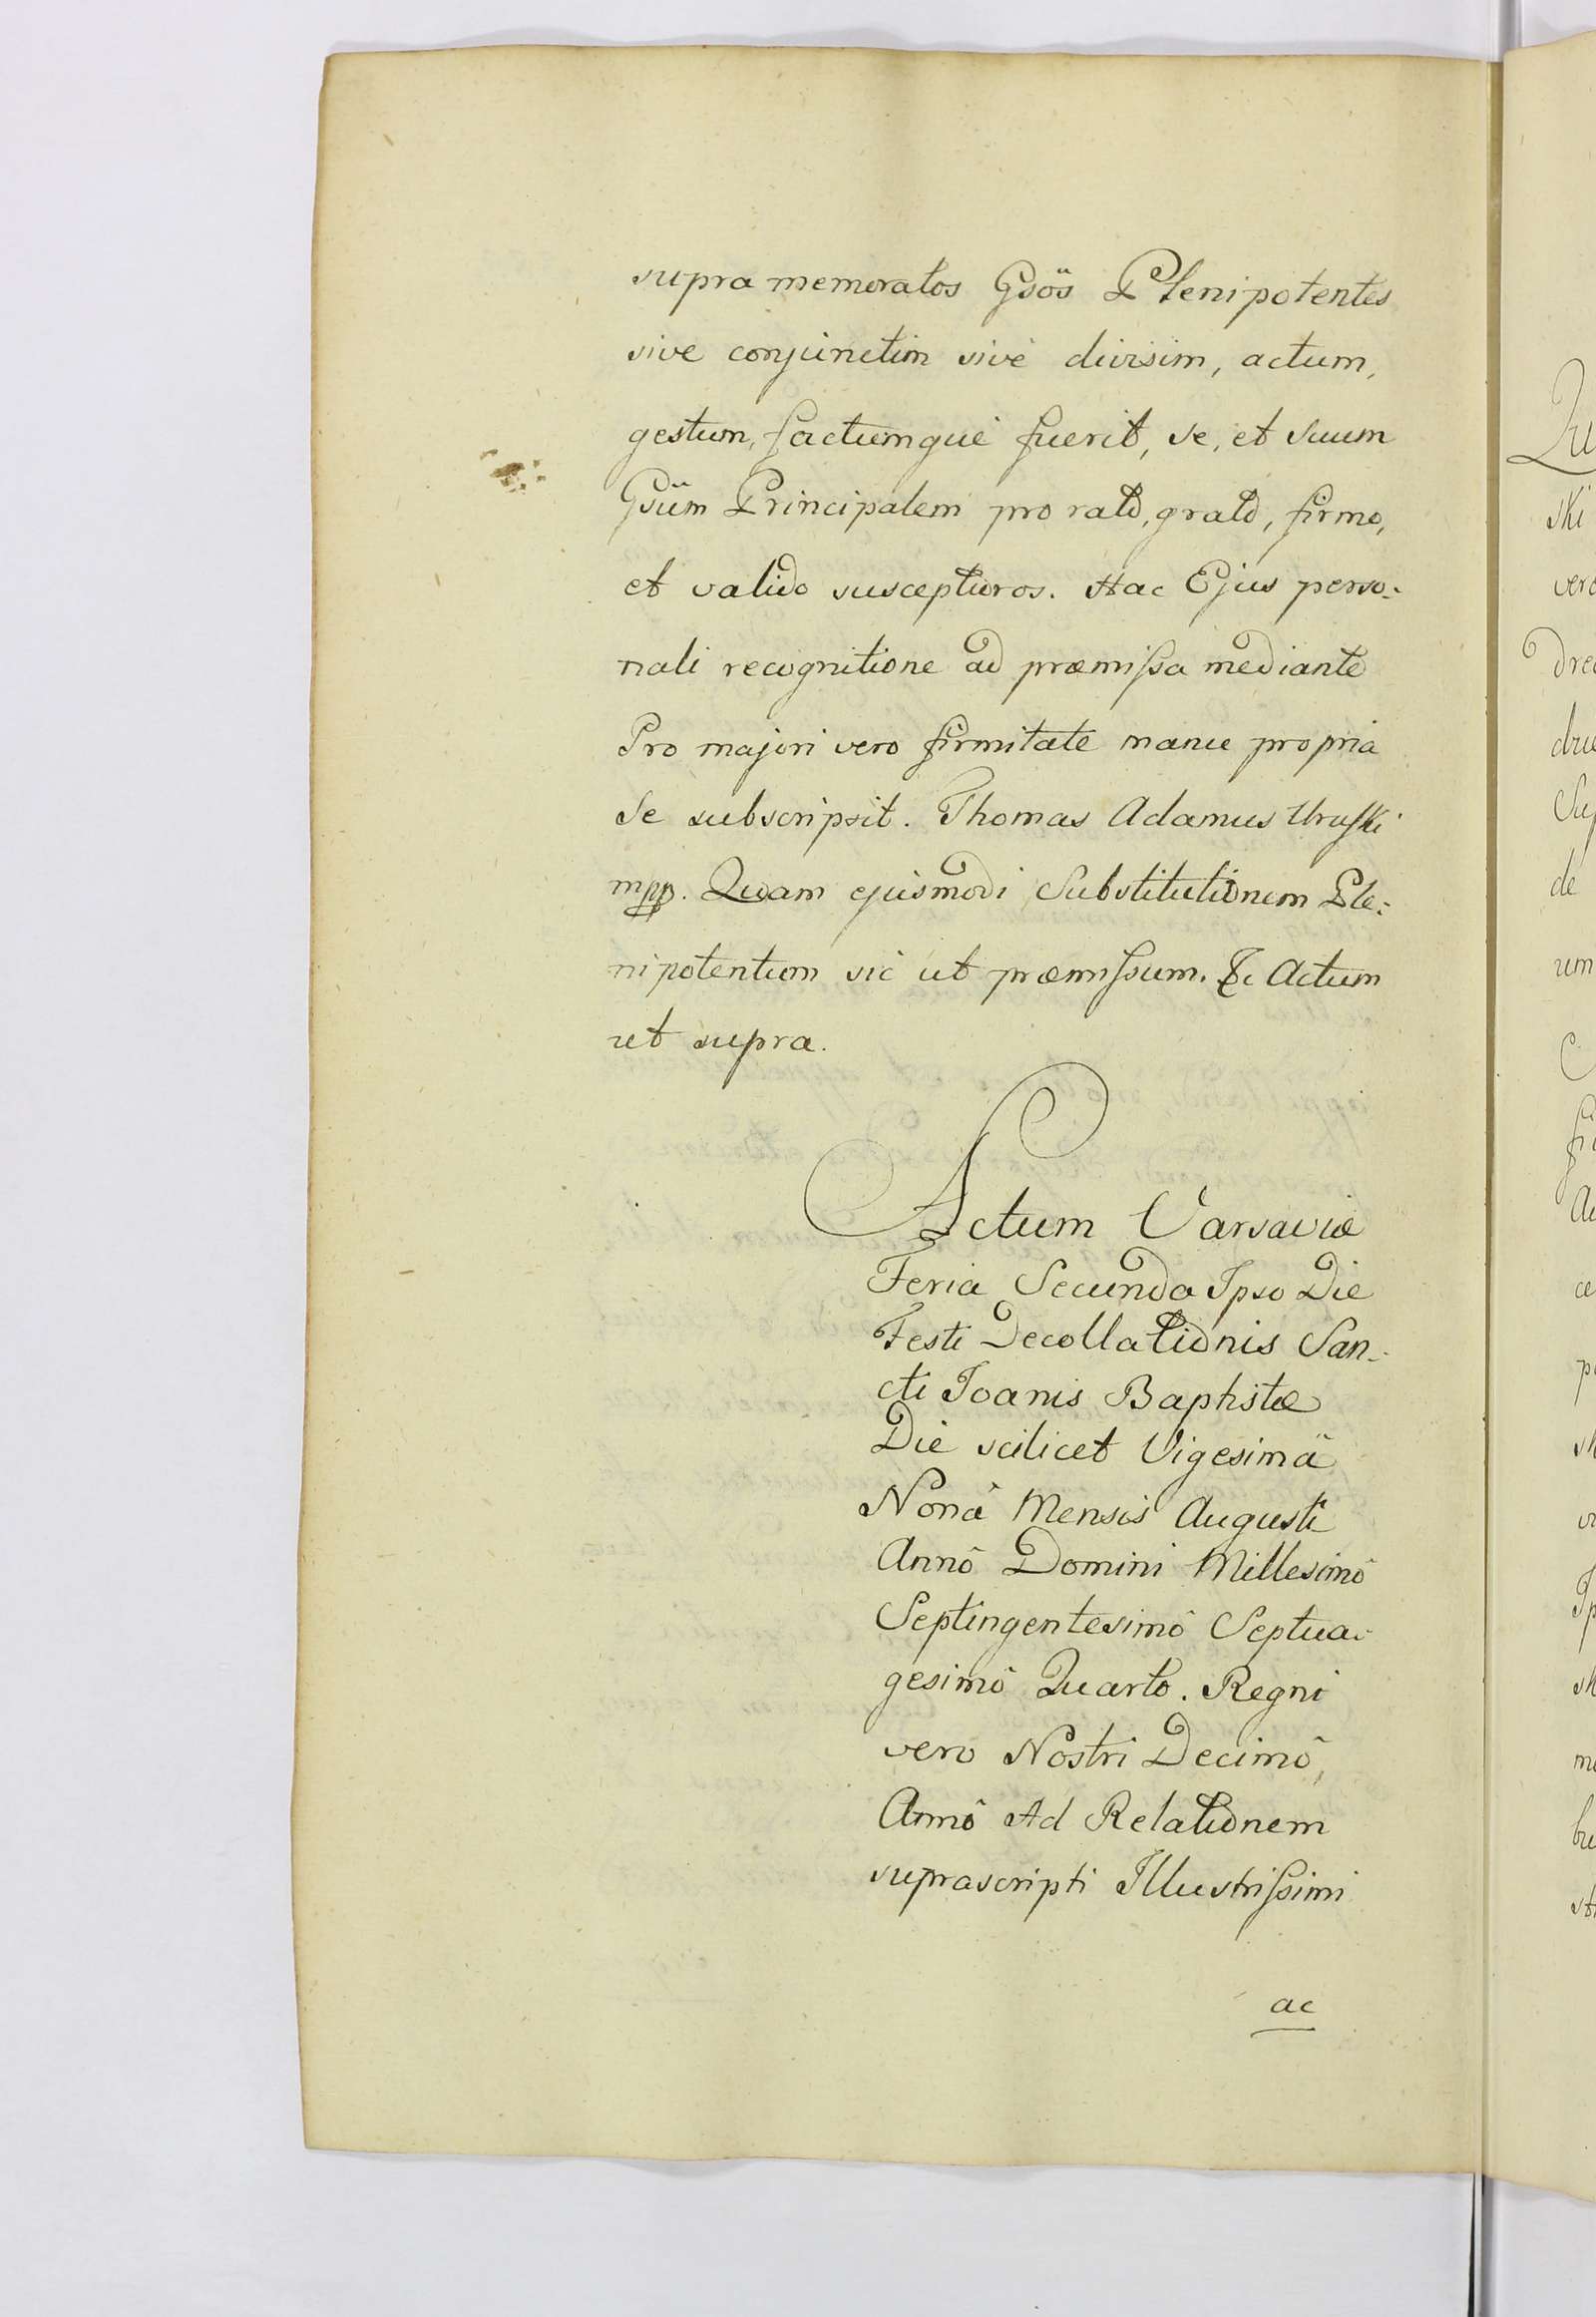 supra memoratos Gsos Plenipotentes
sive conjunctim sive divisim, actum,
gestum, factumque fuerit, se, et suum
Gsum Principalem pro rato, grato, firmo,
et valido suscepturos. Hac Ejus perso-
nali recognitione ad præmissa mediante
Pro majori vero firmitate manu propria
Se subscripsit. Thomas Adamus Uruski
mpp. Quam ejusmodi Substitutionem Ple-
nipotentum sic ut præmissum. &c Actum
ut supra.
Actum Varsaviæ
Feria Secunda Ipso Die
Festi Decollationis San-
cti Joanis Baptistæ
Die scilicet Vigesimâ
Nonâ Mensis Augusti
Annô Domini Millesimô
Septingentesimô Septua-
gesimô Quarto. Regni
vero Nostri Decimô,
Annô Ad Relationem
suprascripti Illustrissimi
ac